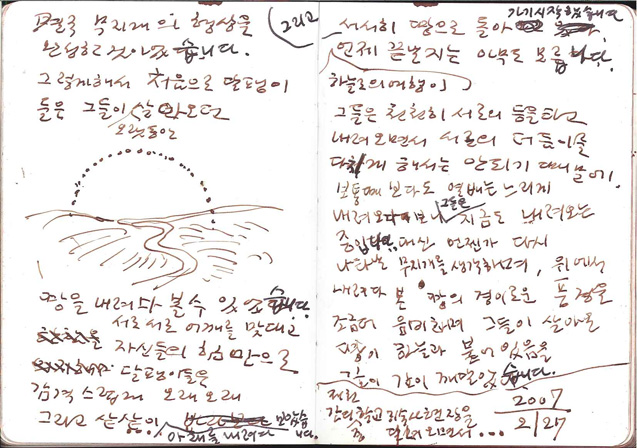 결국 무지개의 형상을
완성한 것이었습니다.
그렇게해서 처음으로 달팽이
들은 그들이 살아오던
오랫동안
땅을 내려다 볼 수 있었습니다.
서로서로 어깨를 맞대고
자신들의 힘만으로
달팽이들은
감격스럽게 오래오래
그리고 샅샅이
아래를 내려다
그리고
서서히 땅으로 돌아
가기 시작했습니다
언제 끝날지는 아무도 모릅니다.
하늘로의 여행이
그들은 천천히 서로의 등을 타고
내려오면서 서로의 더듬이를
다치게 해서는 안되기 때문에,
보통때보다도 열배는 느리게
내려오다보니 그들은 지금도 내려오는
중입니다. 대신 언젠가 다시
나타날 무지개를 생각하며, 위에서
내려다 본 땅의 경이로운 풍경을
조금더 음미하며 그들이 살아온
땅이 하늘과 붙어 있음을
깊이 깨달았습니다.
2007
2/27
달려오면서...